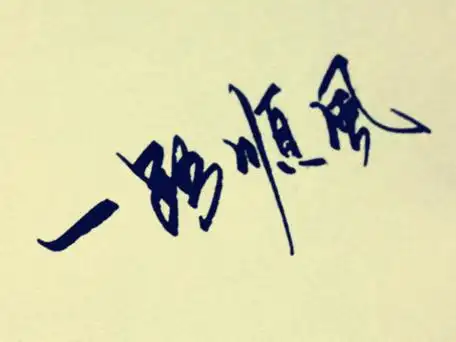 一路顺风